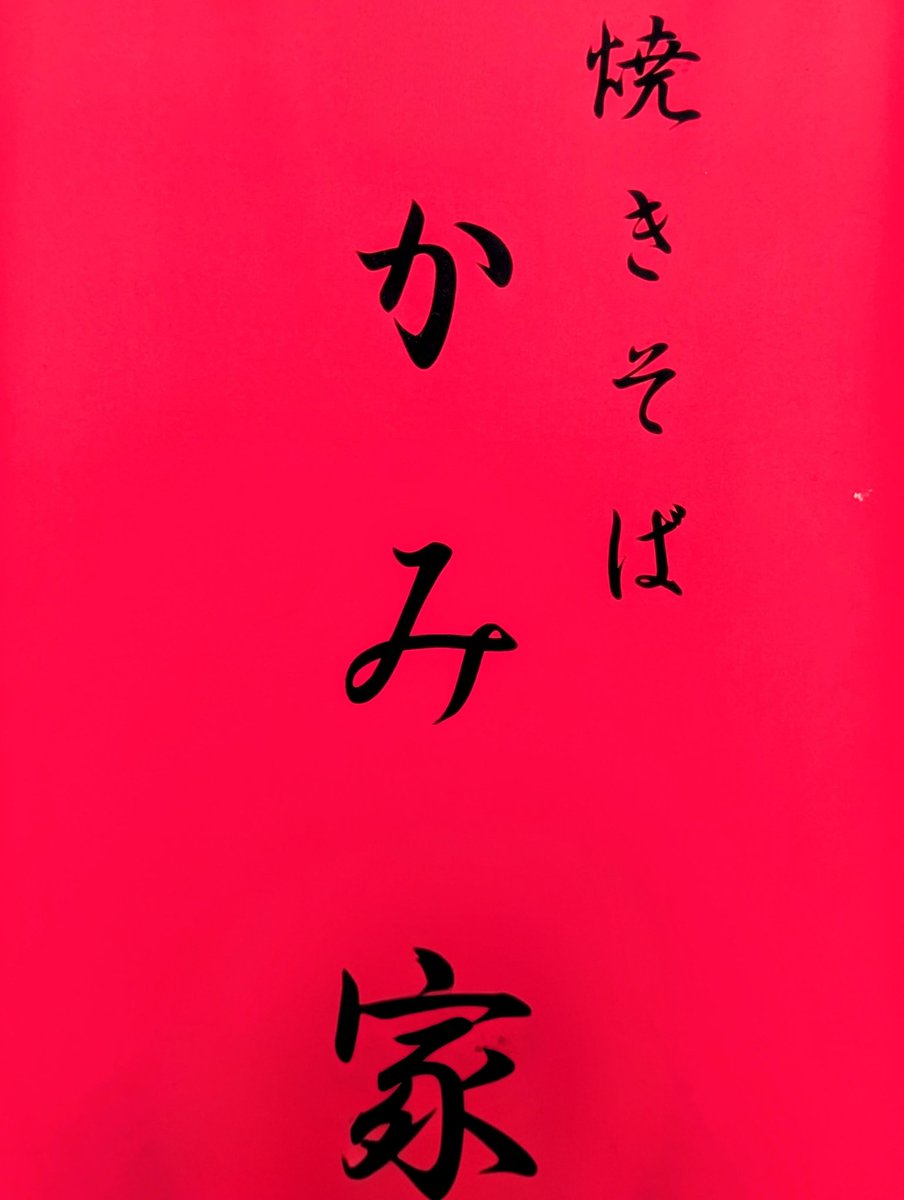 焼きそば
かみ家